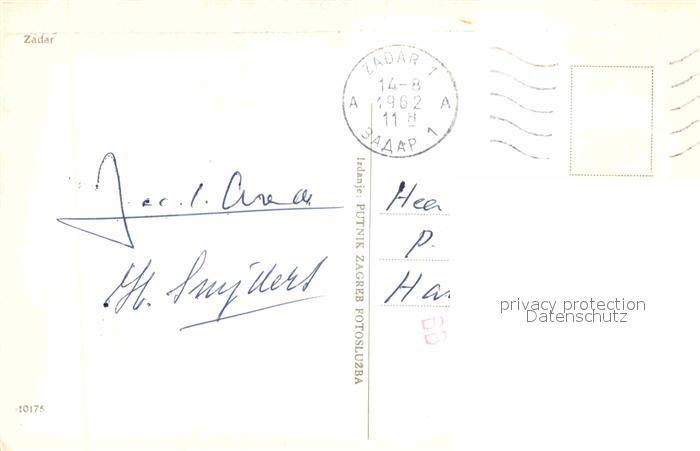 Zadar
ZADAR 1
14-8
A 1962 A
11 H
ЗАДАР 1
Hee
P.
Ha
Izdanje: PUTNIK ZAGREB FOTOSLUŽBA
H. Snijders
privacy protection
Datenschutz
BB
10175